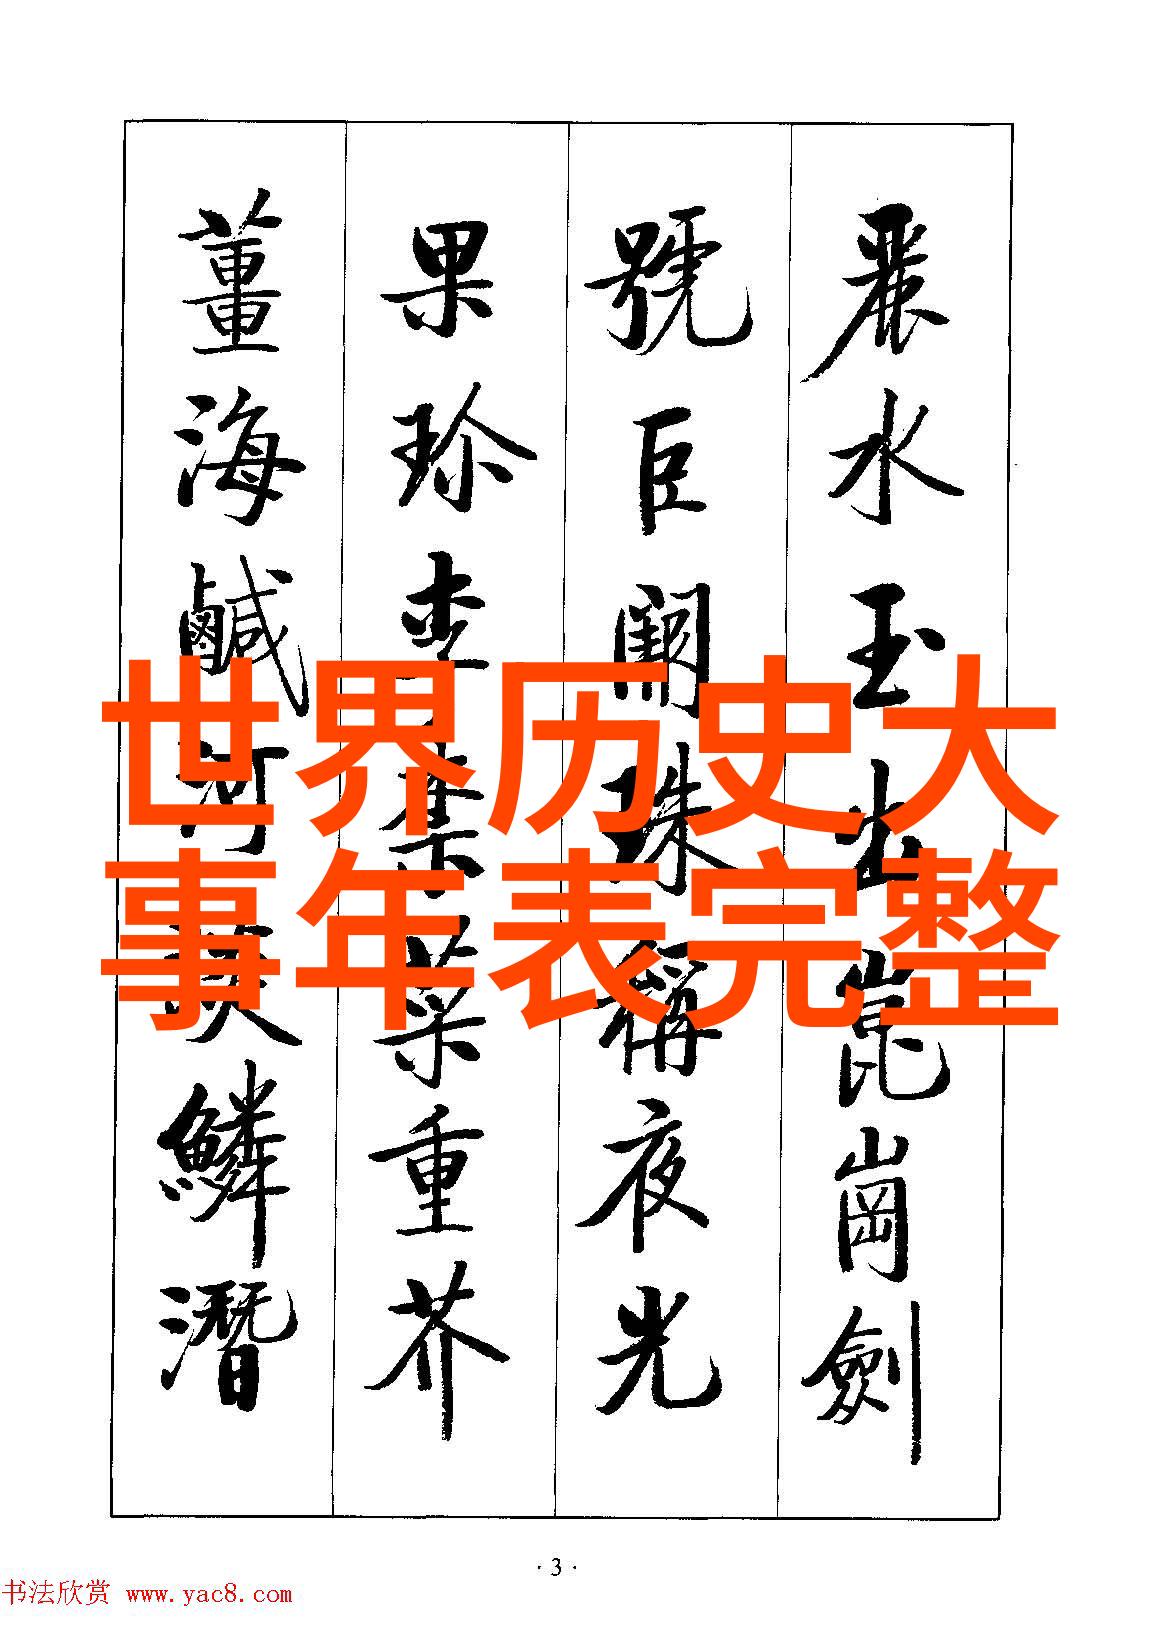 麗水玉出崑崗劍
號巨闕珠稱夜光
果珍李柰菜重芥
薑海鹹河淡鱗潛
世界历史大
事年表完整
·3·
书法欣赏 www.yac8.com